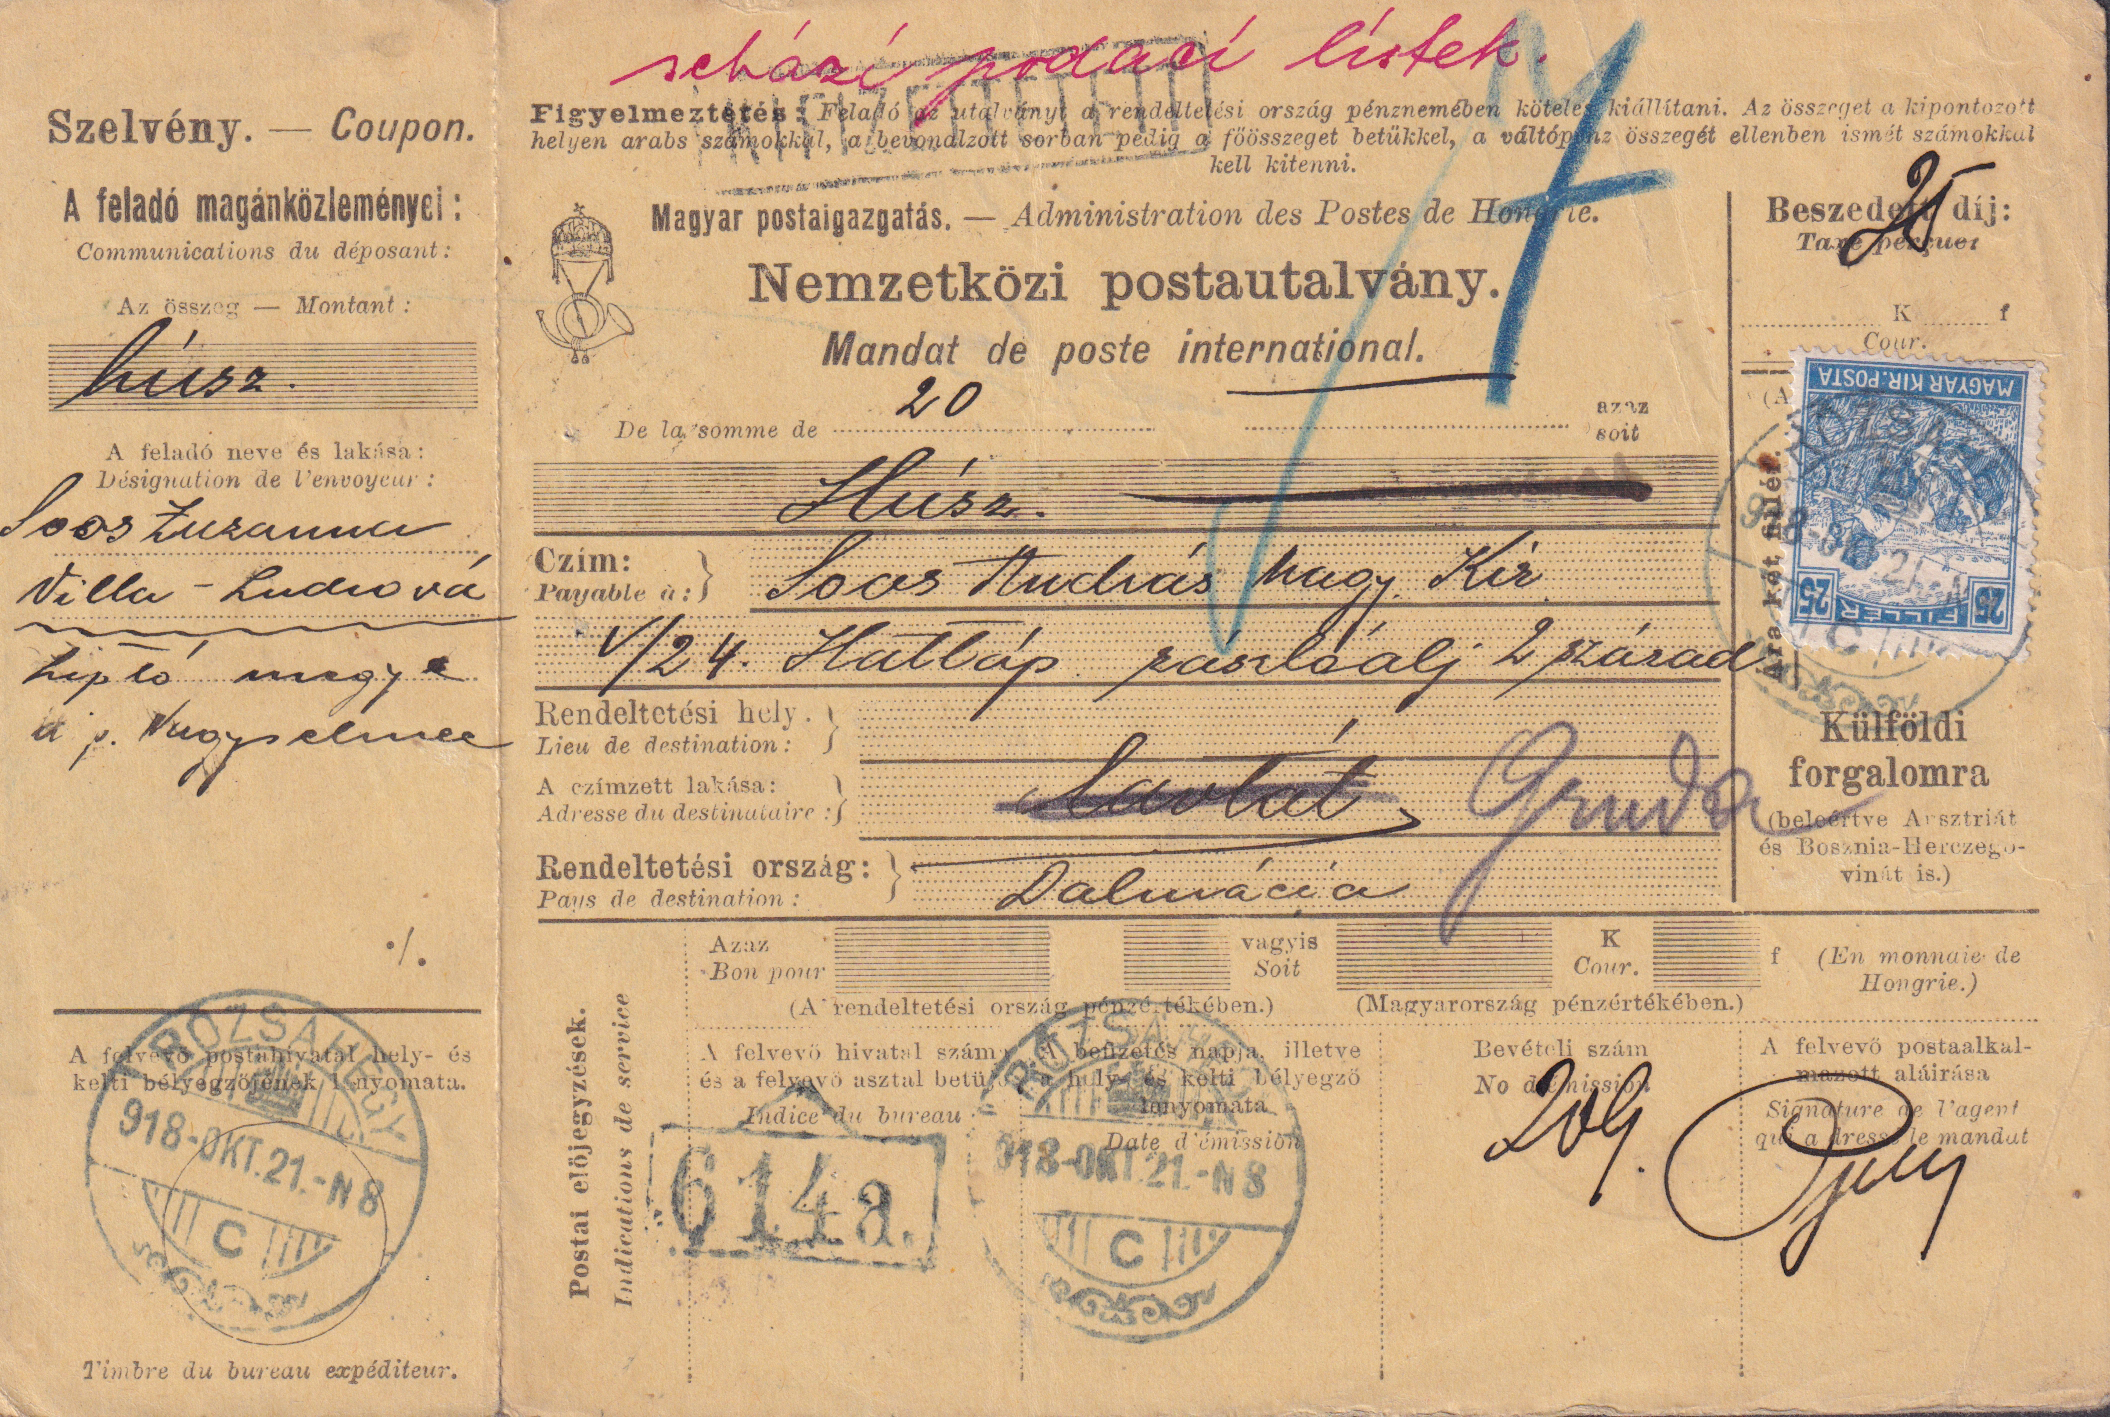 schází podací lístek.
Szelvény. — Coupon.
A feladó magánközleményei:
Communications du déposant:
Az összeg — Montant:
húsz.
A feladó neve és lakása:
Désignation de l'envoyeur:
Soos Zuzanna
Villa - Ludrová
Liptó megye
u. p. Nagyselmec
./.
A felvevő postahivatal hely- és
kelti bélyegzőjének lenyomata.
RÓZSAHEGY
918-OKT.21.-N8
C
Timbre du bureau expéditeur.
Figyelmeztetés: Feladó az utalványt a rendeltetési ország pénznemében köteles kiállítani. Az összeget a kipontozott
helyen arabs számokkal, a bevonalzott sorban pedig a főösszeget betükkel, a váltópénz összegét ellenben ismét számokkal
kell kitenni.
Magyar postaigazgatás. — Administration des Postes de Hongrie.
Nemzetközi postautalvány.
Mandat de poste international.
De la somme de 20
azaz
soit
Húsz.
Czím:
Payable à:
Soos András magy. Kir.
V/24. Hatláp zászlóalj 2 század
Rendeltetési hely.
Lieu de destination:
A czímzett lakása:
Adresse du destinataire:
Gruda
Rendeltetési ország:
Pays de destination:
Dalmácia
Beszedett díj:
Taxe perçue:
25
K f
Cour.
MAGYAR KIR. POSTA
25 FILLÉR 25
Ára két fillér.
Külföldi
forgalomra
(beleértve Ausztriát
és Bosznia-Herczego-
vinát is.)
Azaz
Bon pour
vagyis
Soit
K
Cour.
f (En monnaie de
Hongrie.)
(A rendeltetési ország pénzértékében.)
(Magyarország pénzértékében.)
Postai előjegyzések.
Indications de service
A felvevő hivatal száma
és a felvevő asztal betüje
Indice du bureau
614a.
A befizetés napja, illetve
a hely- és kelti bélyegző
lenyomata
Date d'émission
RÓZSAHEGY
918-OKT.21.-N8
C
Bevételi szám
No d'émission
209.
A felvevő postaalkal-
mazott aláirása
Signature de l'agent
qui a dressé le mandat